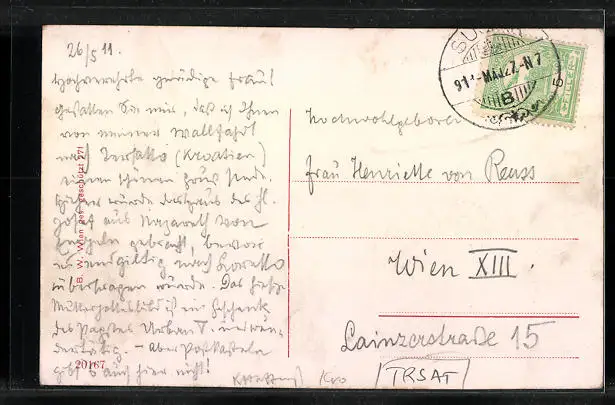 26/5 11.
Hochverehrte gnädige Frau!
Gestatten Sie mir, daß ich Ihnen
von meiner Wallfahrt
nach Tersatto (Kroatien)
einen schönen Gruß sende.
Hieher wurde das Haus der hl.
aus Nazareth von
Engeln gebracht, bevor
es endgiltig nach Loretto
übertragen wurde. Das hiesige
Muttergottesbild ist ein Geschenk
des Papstes Urban V.
– aber Postkasteln
gibt's auch hier nicht!
20167
B. K. W. Wien ges. geschützt 271
SUŠAK
911 MAJ 27 N7
B
5 FILLÉR
Hochwohlgeboren
Frau Henriette von Reuss
Wien XIII.
Lainzerstraße 15
TRSAT